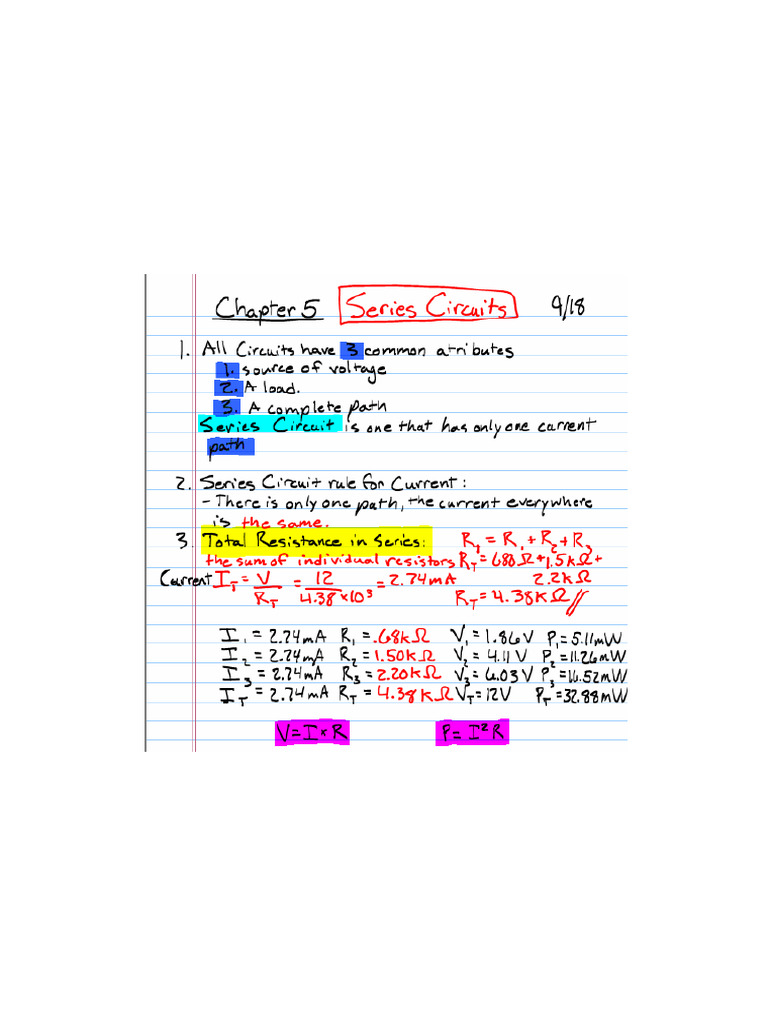 Chapter 5 Series Circuits 9/18
1. All Circuits have 3 common atributes
1. source of voltage
2. A load.
3. A complete path
Series Circuit is one that has only one current
path
2. Series Circuit rule for Current:
- There is only one path, the current everywhere
is the same.
3. Total Resistance in Series: R₁ = R₁ + R₂ + R₃
the sum of individual resistors R_T = 680Ω + 1.5KΩ +
Current I_T = V/R_T = 12/4.38×10³ = 2.74mA 2.2KΩ
R_T = 4.38KΩ //
I₁ = 2.74mA R₁ = .68kΩ V₁ = 1.86V P₁ = 5.11mW
I₂ = 2.74mA R₂ = 1.50KΩ V₂ = 4.11V P₂ = 11.26mW
I₃ = 2.74mA R₃ = 2.20KΩ V₃ = 6.03V P₃ = 16.52mW
I_T = 2.74mA R_T = 4.38KΩ V_T = 12V P_T = 32.88mW
V = I × R P = I²R